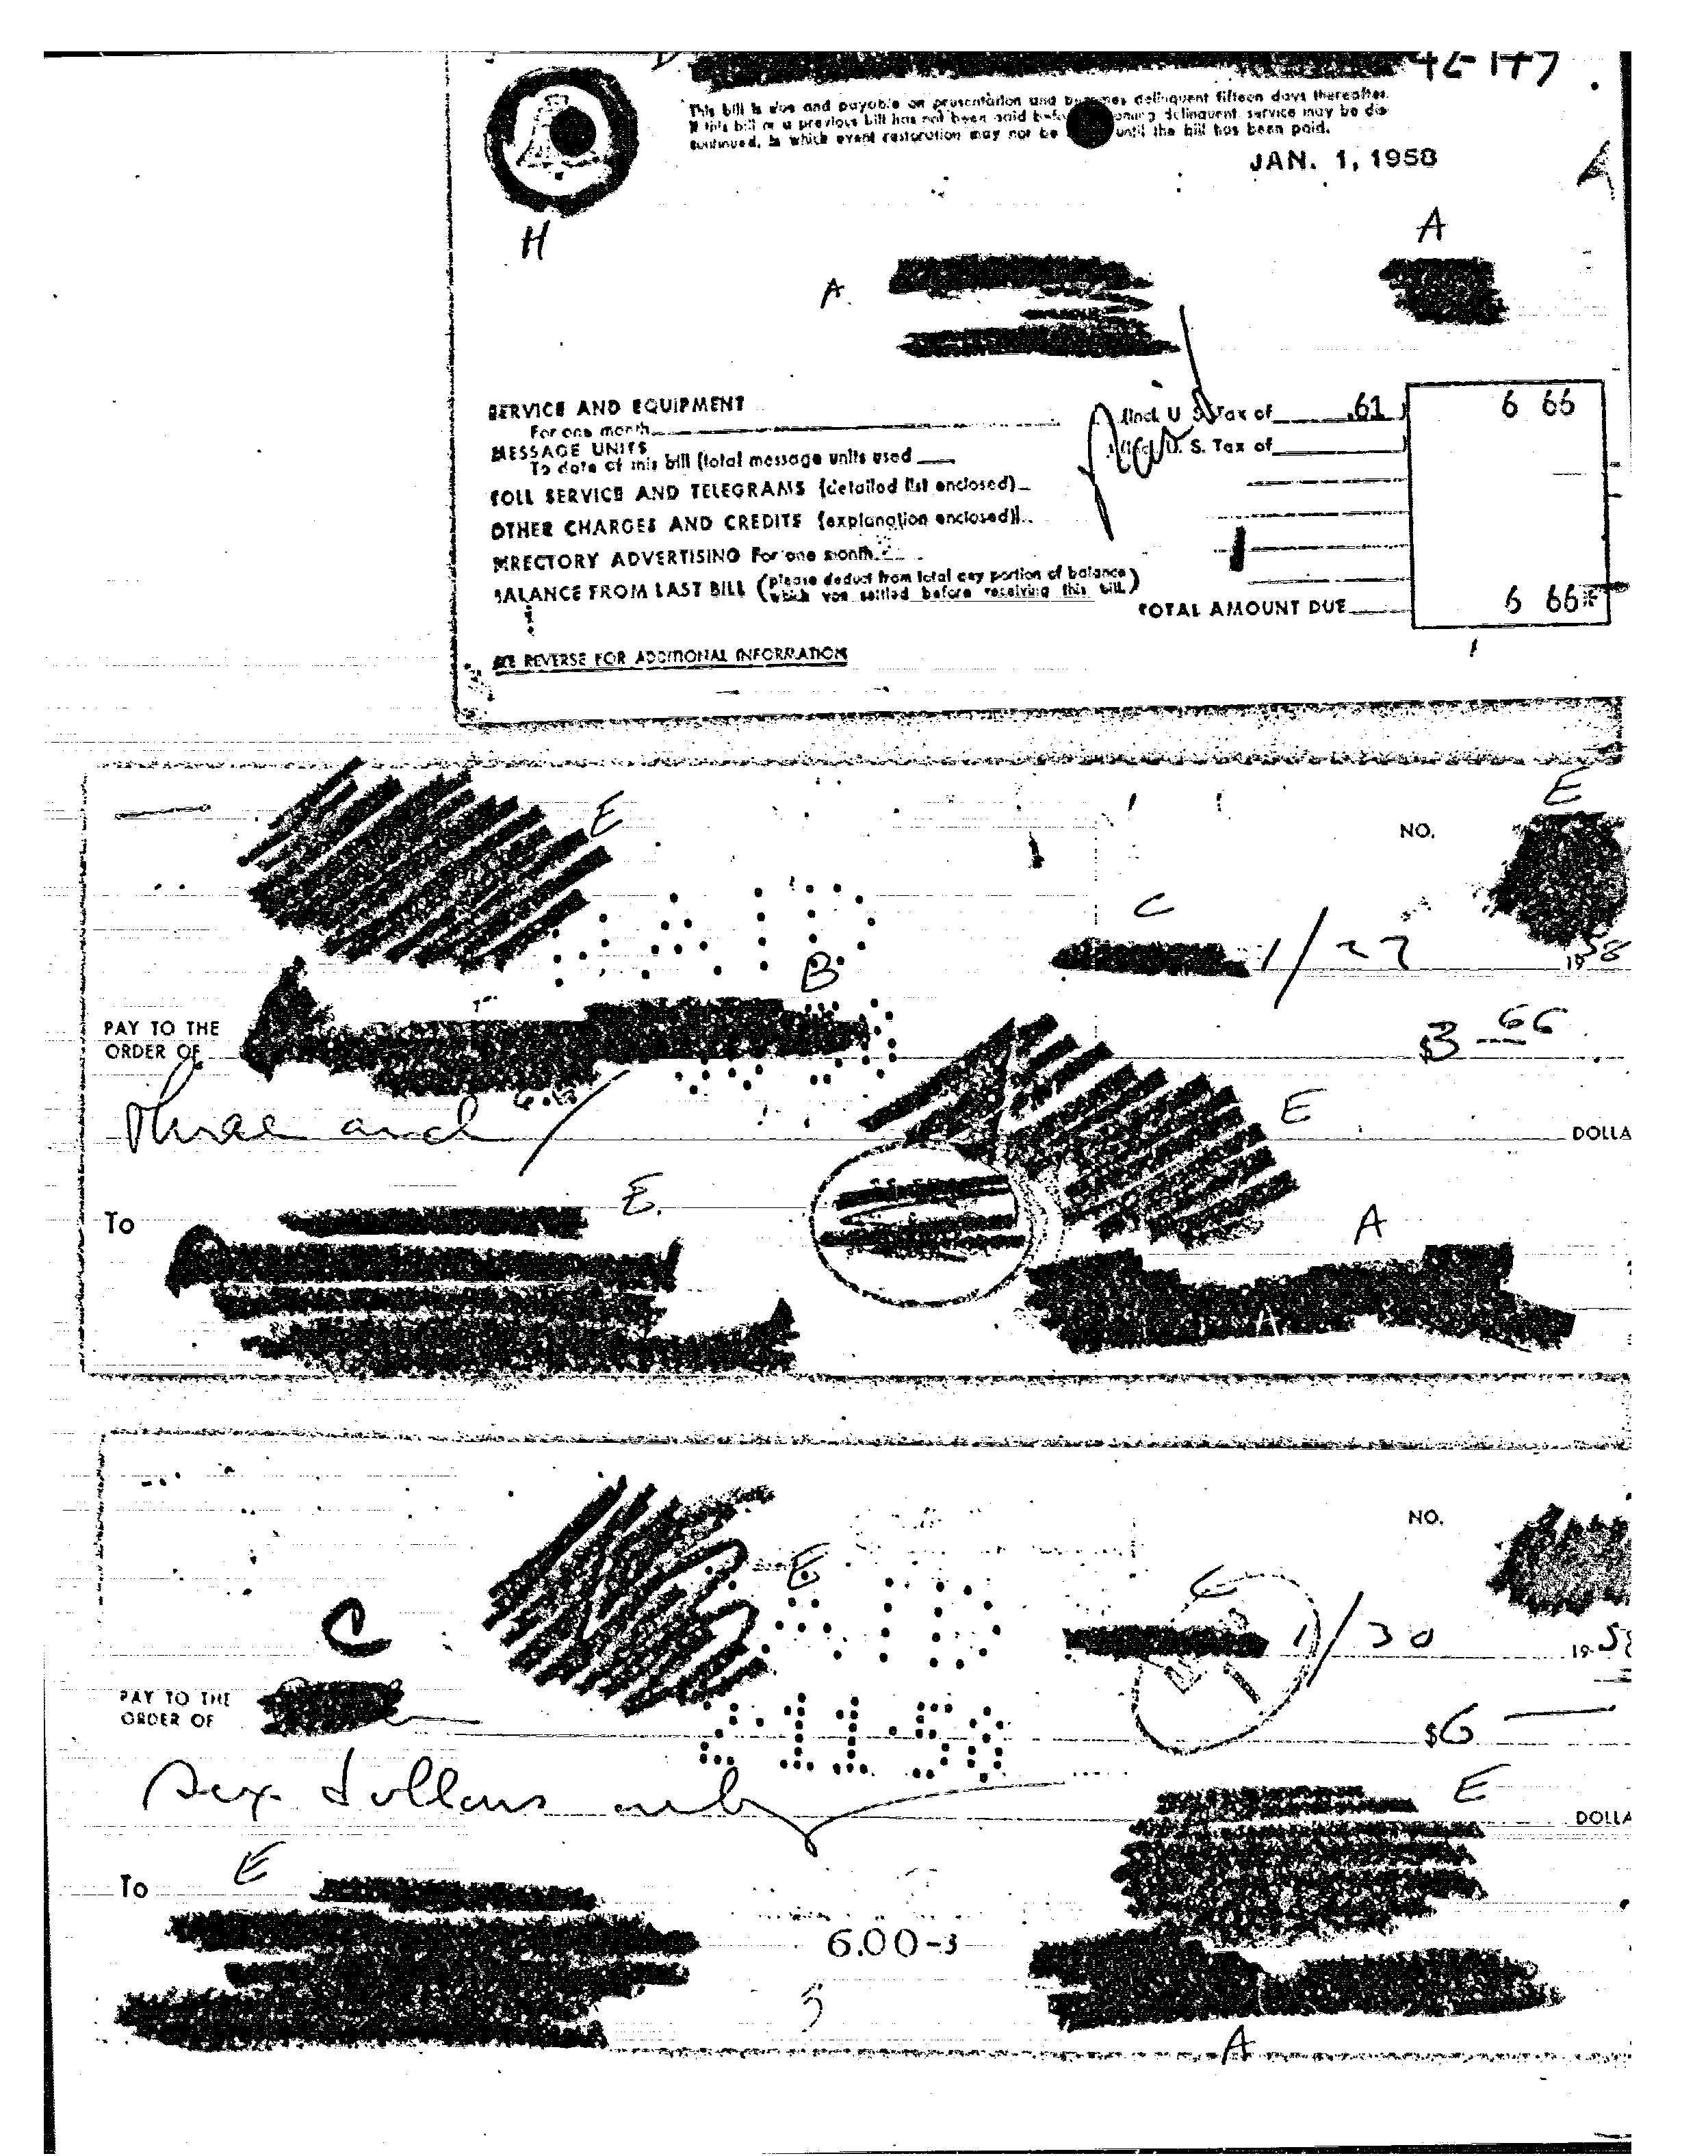 42-147
This bill is due and payable on presentation and becomes delinquent fifteen days thereafter.
If this bill or a previous bill has not been paid delinquent service may be dis-
continued, in which event restoration may not be until the bill has been paid.
JAN. 1, 1958
H
A
A
SERVICE AND EQUIPMENT
For one month (Incl. U. S. Tax of .61) 6 66
MESSAGE UNITS
To date of this bill (total message units used (Incl. U. S. Tax of )
TOLL SERVICE AND TELEGRAMS (detailed list enclosed)
OTHER CHARGES AND CREDITS (explanation enclosed)
DIRECTORY ADVERTISING For one month
BALANCE FROM LAST BILL (please deduct from total any portion of balance
which you settled before receiving this bill)
TOTAL AMOUNT DUE 6 66*
Paid
SEE REVERSE FOR ADDITIONAL INFORMATION
E
E
NO.
C
1/27 1958
B
PAY TO THE
ORDER OF $3 66
Three and 66/ DOLLA
E
To E.
A
A
NO.
E
C
C
1/30 19 58
PAY TO THE
ORDER OF $6
2·11·58
Six dollars only DOLLA
E
To E
6.00-3
5
A